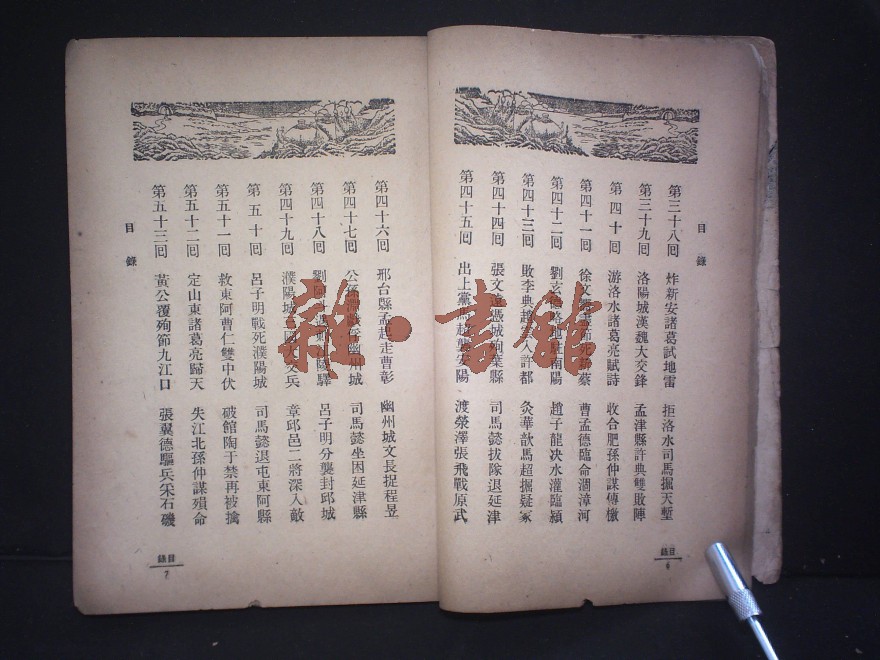 目錄
第三十八囘 炸新安諸葛試地雷 拒洛水司馬掘天塹
第三十九囘 洛陽城漢魏大交鋒 孟津縣許典雙敗陣
第四十囘 游洛水諸葛亮賦詩 收合肥孫仲謀傳檄
第四十一囘 徐文 死 蔡 曹孟德臨命澗漳河
第四十二囘 劉玄德 南陽 趙子龍決水灌臨潁
第四十三囘 敗李典趙 人許都 灸華歆馬超掘疑冢
第四十四囘 張文遠憑城殉葉縣 司馬懿拔隊退延津
第四十五囘 出上黨 起襲安陽 渡滎澤張飛戰原武
目錄
6
第四十六囘 邢台縣孟起走曹彰 幽州城文長捉程昱
第四十七囘 公孫 幽州城 司馬懿坐困延津縣
第四十八囘 劉 陵驛 呂子明分襲封邱城
第四十九囘 濮陽城 國大交兵 章邱邑二將深入敵
第五十囘 呂子明戰死濮陽城 司馬懿退屯東阿縣
第五十一囘 救東阿曹仁雙中伏 破館陶于禁再被擒
第五十二囘 定山東諸葛亮歸天 失江北孫仲謀殞命
第五十三囘 黃公覆殉節九江口 張翼德驅兵采石磯
目錄
目錄
7
雜·書館